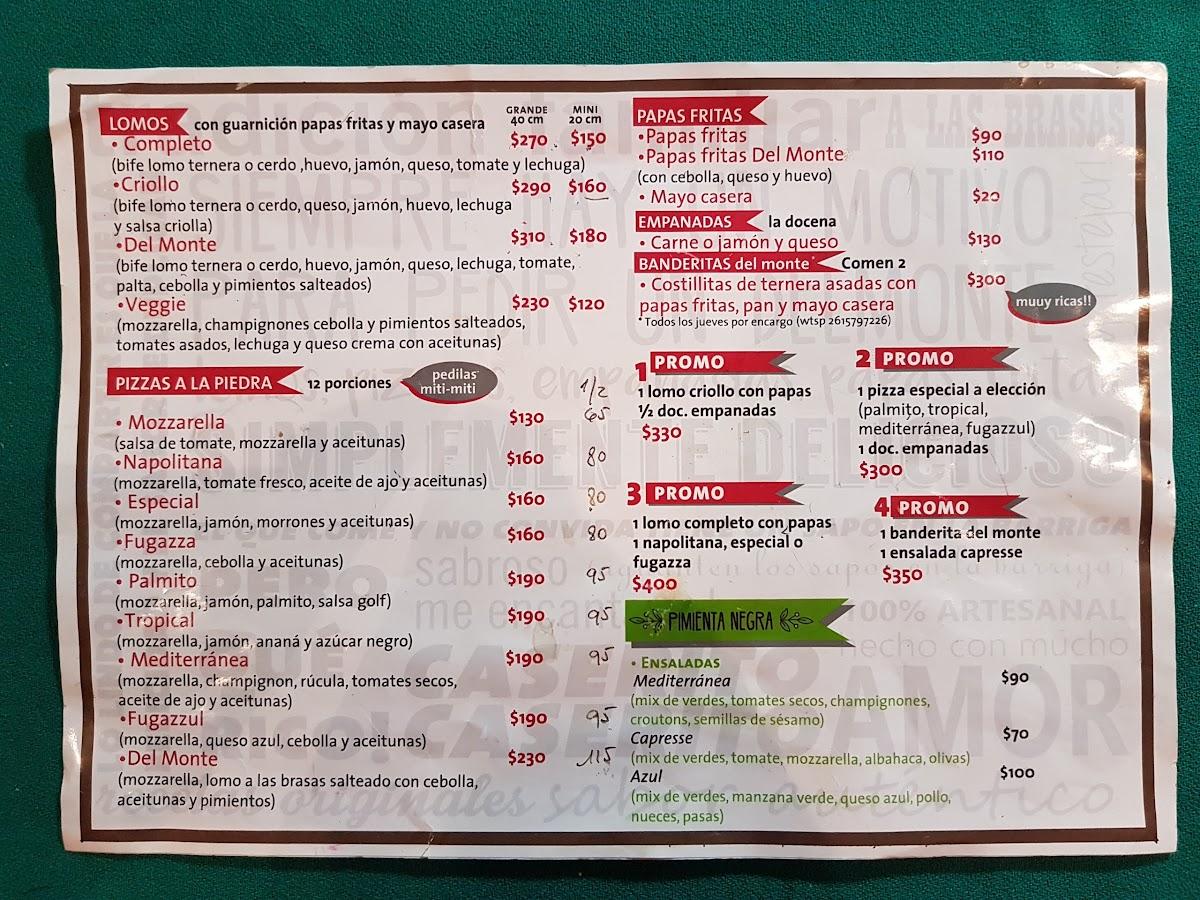 LOMOS con guarnición papas fritas y mayo casera GRANDE 40 cm MINI 20 cm
• Completo $270 $150
(bife lomo ternera o cerdo ,huevo, jamón, queso, tomate y lechuga)
•Criollo $290 $160
(bife lomo ternera o cerdo, queso, jamón, huevo, lechuga
y salsa criolla)
•Del Monte $310 $180
(bife lomo ternera o cerdo, huevo, jamón, queso, lechuga, tomate,
palta, cebolla y pimientos salteados)
•Veggie $230 $120
(mozzarella, champignones cebolla y pimientos salteados,
tomates asados, lechuga y queso crema con aceitunas)
PIZZAS A LA PIEDRA 12 porciones
pedilas
miti-miti
1/2
• Mozzarella $130 65
(salsa de tomate, mozzarella y aceitunas)
•Napolitana $160 80
(mozzarella, tomate fresco, aceite de ajo y aceitunas)
• Especial $160 80
(mozzarella, jamón, morrones y aceitunas)
•Fugazza $160 80
(mozzarella, cebolla y aceitunas)
• Palmito $190 95
(mozzarella, jamón, palmito, salsa golf)
•Tropical $190 95
(mozzarella, jamón, ananá y azúcar negro)
• Mediterránea $190 95
(mozzarella, champignon, rúcula, tomates secos,
aceite de ajo y aceitunas)
•Fugazzul $190 95
(mozzarella, queso azul, cebolla y aceitunas)
•Del Monte $230 115
(mozzarella, lomo a las brasas salteado con cebolla,
aceitunas y pimientos)
PAPAS FRITAS
•Papas fritas $90
•Papas fritas Del Monte $110
(con cebolla, queso y huevo)
• Mayo casera $20
EMPANADAS la docena
• Carne o jamón y queso $130
BANDERITAS del monte* Comen 2
• Costillitas de ternera asadas con $300
papas fritas, pan y mayo casera
muuy ricas!!
* Todos los jueves por encargo (wtsp 2615797226)
1 PROMO
1 lomo criollo con papas
½ doc. empanadas
$330
2 PROMO
1 pizza especial a elección
(palmito, tropical,
mediterránea, fugazzul)
1 doc. empanadas
$300
3 PROMO
1 lomo completo con papas
1 napolitana, especial o
fugazza
$400
4 PROMO
1 banderita del monte
1 ensalada capresse
$350
PIMIENTA NEGRA
• ENSALADAS
Mediterránea $90
(mix de verdes, tomates secos, champignones,
croutons, semillas de sésamo)
Capresse $70
(mix de verdes, tomate, mozzarella, albahaca, olivas)
Azul $100
(mix de verdes, manzana verde, queso azul, pollo,
nueces, pasas)
A LAS BRASAS
SIEMPRE HAY UN MOTIVO
PARA PEDIR UN DELMONTE
SIMPLEMENTE DELICIOSO
sabroso
100% ARTESANAL
hecho con mucho
AMOR
CASERITO